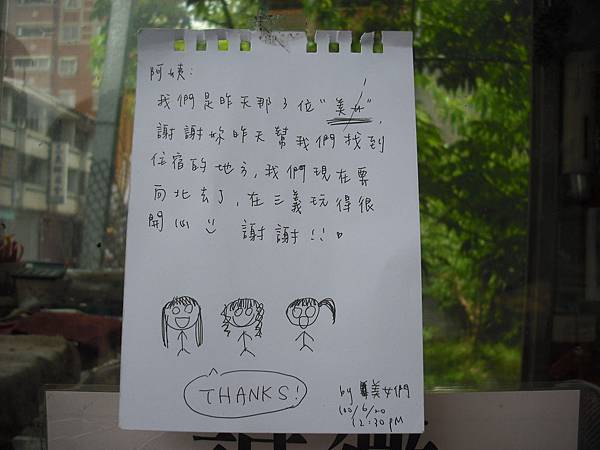 阿姨:
我們是昨天那3位"美女",
謝謝妳昨天幫我們找到
住宿的地方,我們現在要
回北去了,在三義玩得很
開心 謝謝!!
THANKS!
by 美女們
100/6/20
12:30 PM